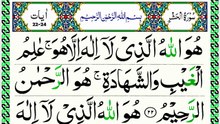 سُوْرَةُ الْحَشْر بِسْمِ اللهِ الرَّحْمٰنِ الرَّحِيْمِ آيات 22-24
هُوَ اللهُ الَّذِیْ لَاۤ اِلٰهَ اِلَّا هُوَ ۚ عٰلِمُ
الْغَیْبِ وَالشَّهَادَةِ ۚ هُوَ الرَّحْمٰنُ
الرَّحِیْمُ ﴿۲۲﴾ هُوَ اللهُ الَّذِیْ لَاۤ اِلٰهَ